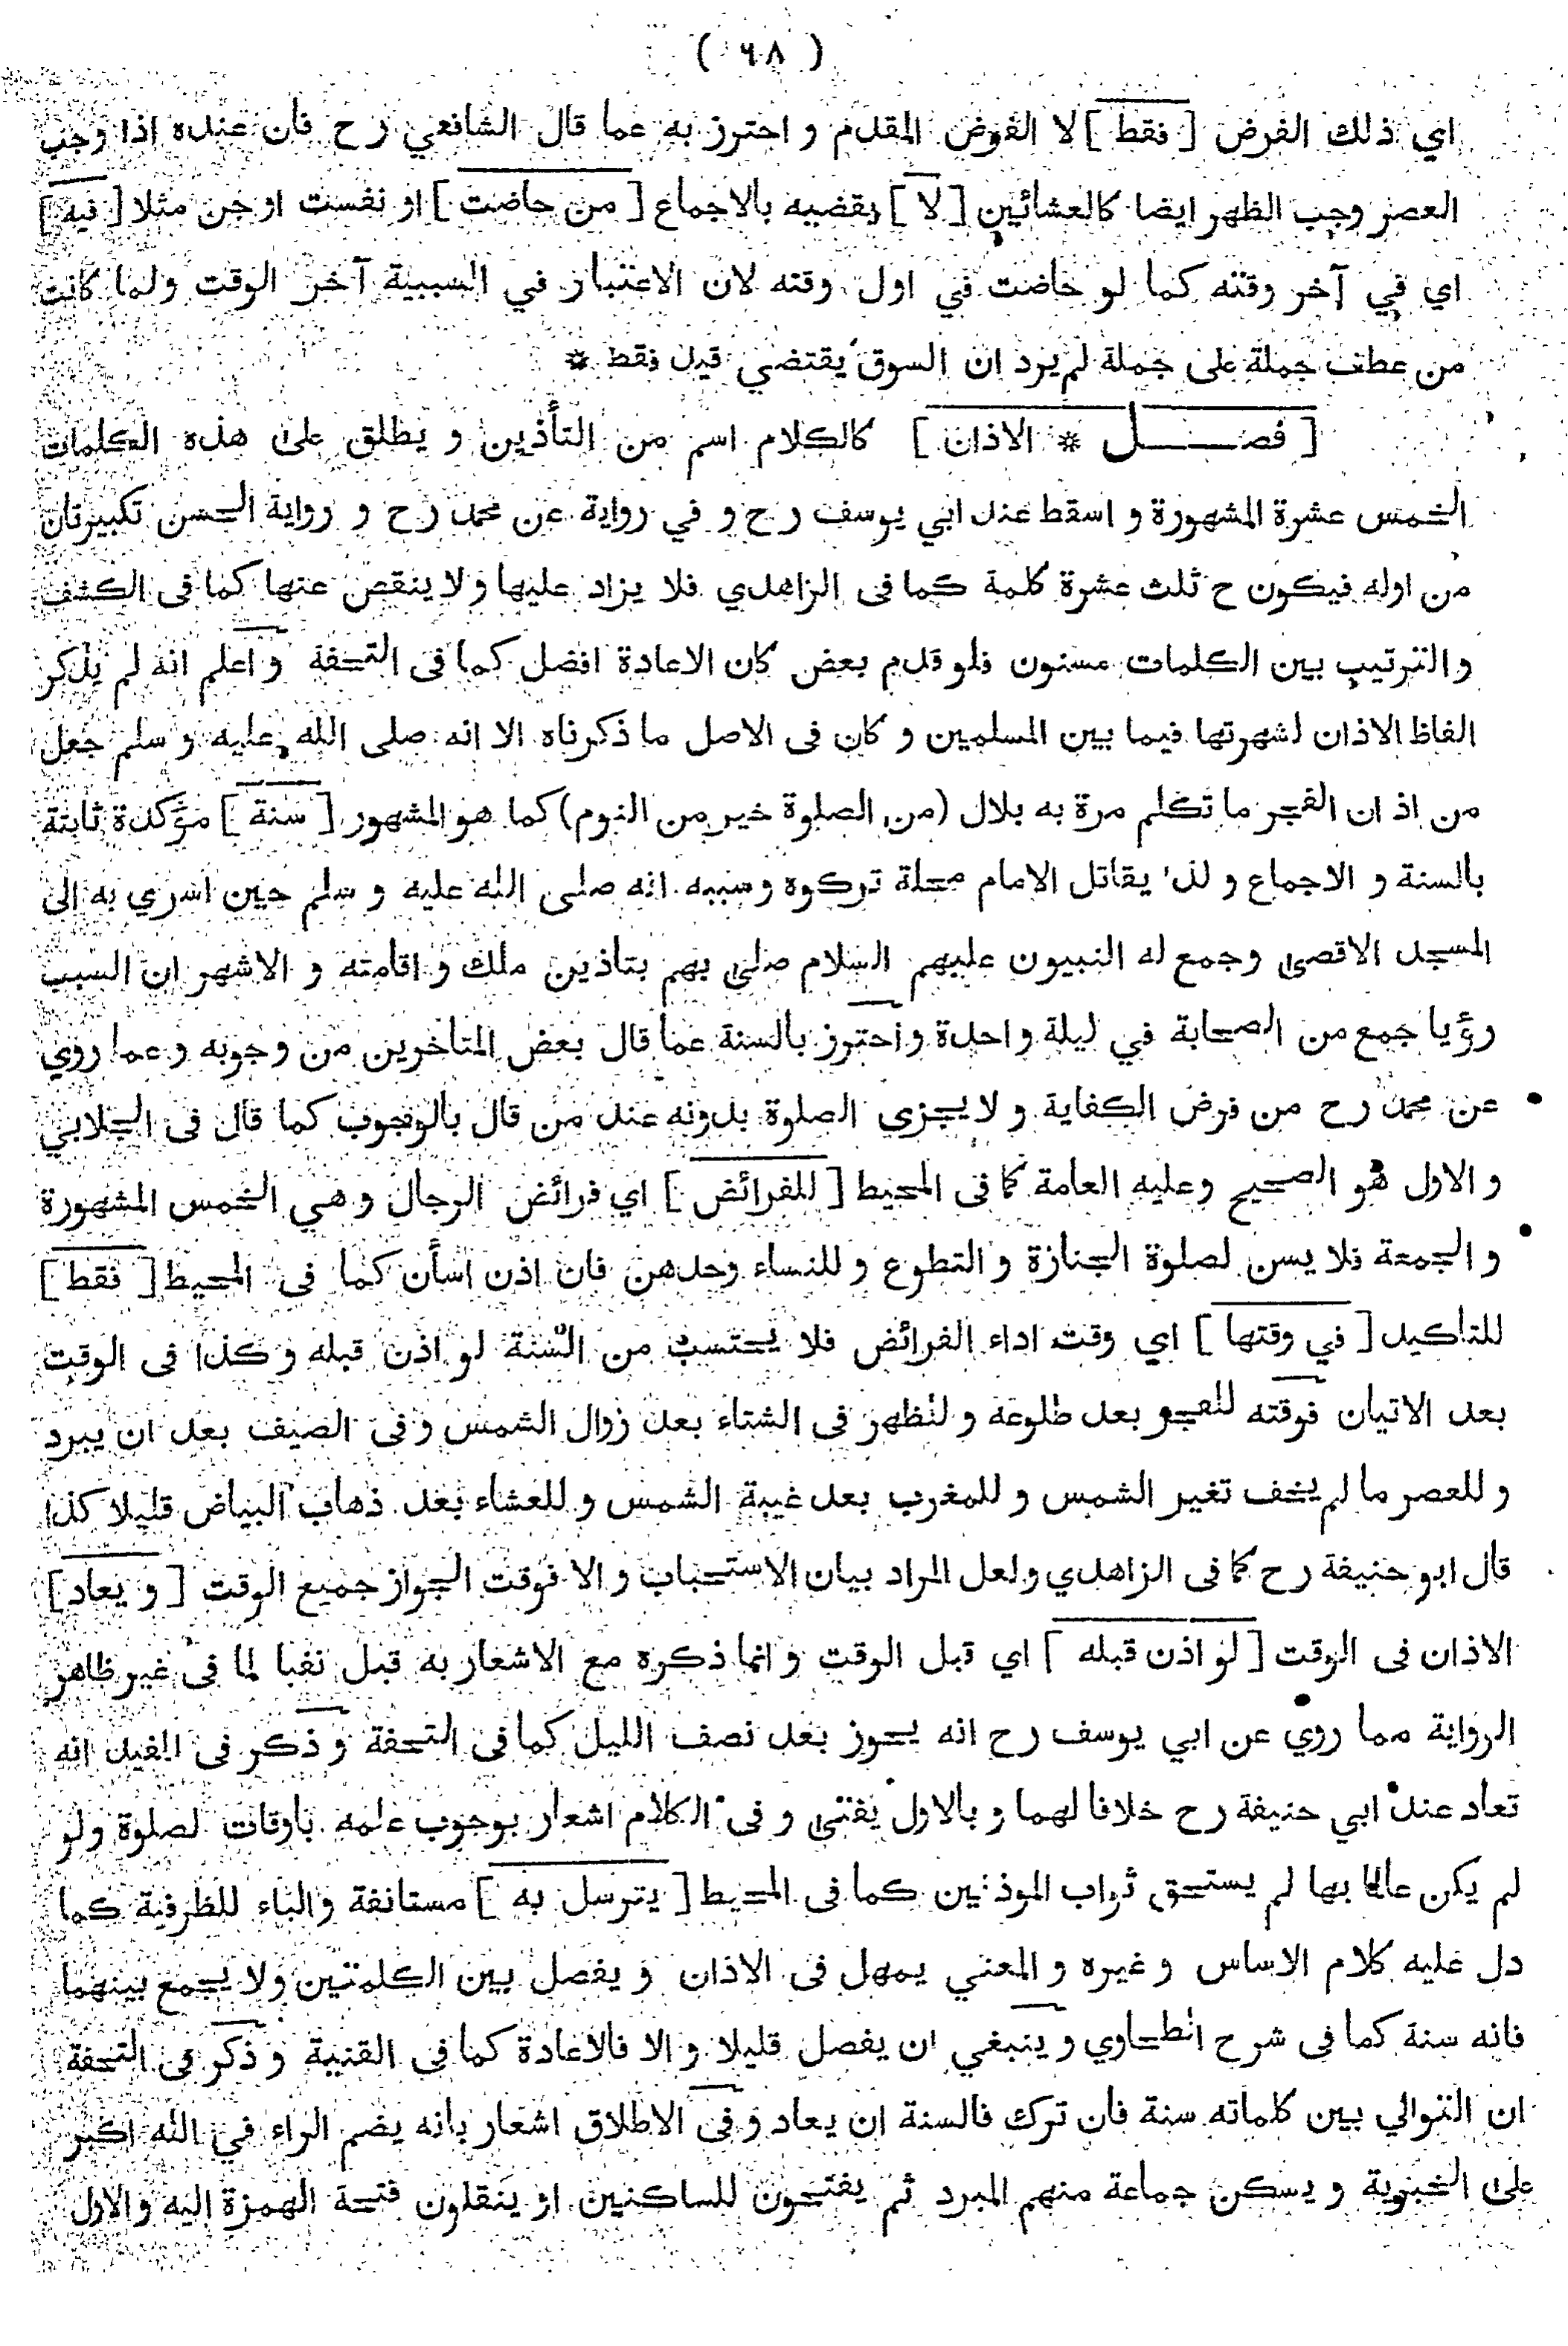 ( ٦٨ )
اي ذلك الفرض [ فقط ] لا الفرض المقدم و احترز به عما قال الشافعي رح فان عنده اذا وجب
العصر وجب الظهر ايضا كالعشائين [ لا ] يقضيه بالاجماع [ من حاضت ] او نفست او جن مثلا [ فيه ]
اي في آخر وقته كما لو حاضت في اول وقته لان الاعتبار في السببية آخر الوقت ولما كانت
من عطف جملة على جملة لم يرد ان السوق يقتضي قيد فقط *
[ فصــــــل * الاذان ] كالكلام اسم من التأذين و يطلق على هذه الكلمات
الخمس عشرة المشهورة و اسقط عند ابي يوسف رح و في رواية عن محمد رح و رواية الحسن تكبيرتان
من اوله فيكون ح ثلث عشرة كلمة كما فى الزاهدي فلا يزاد عليها ولا ينقص عنها كما فى الكشف
و الترتيب بين الكلمات مسنون فلو قدم بعض كان الاعادة افضل كما فى التحفة و اعلم انه لم يذكر
الفاظ الاذان لشهرتها فيما بين المسلمين و كان فى الاصل ما ذكرناه الا انه صلى الله عليه و سلم جعل
من اذان الفجر ما تكلم مرة به بلال (من الصلوة خير من النوم) كما هو المشهور [ سنة ] مؤكدة ثابتة
بالسنة و الاجماع و لذا يقاتل الامام محلة تركوه و سببه انه صلى الله عليه و سلم حين اسري به الى
المسجد الاقصى وجمع له النبيون عليهم السلام صلى بهم بتاذين ملك و اقامته و الاشهر ان السبب
رؤيا جمع من الصحابة في ليلة واحدة و احترز بالسنة عما قال بعض المتاخرين من وجوبه و عما روي
عن محمد رح من فرض الكفاية و لا يجزى الصلوة بدونه عند من قال بالوجوب كما قال فى الجلابي
و الاول هو الصحيح وعليه العامة كما فى المحيط [ للفرائض ] اي فرائض الرجال و هي الخمس المشهورة
و الجمعة فلا يسن لصلوة الجنازة و التطوع و للنساء وحدهن فان اذن اسأن كما فى المحيط [ فقط ]
للتاكيد [ في وقتها ] اي وقت اداء الفرائض فلا يحتسب من السنة لو اذن قبله و كذا فى الوقت
بعد الاتيان فوقته للفجر بعد طلوعه و للظهر فى الشتاء بعد زوال الشمس و فى الصيف بعد ان يبرد
و للعصر ما لم يخف تغير الشمس و للمغرب بعد غيبة الشمس و للعشاء بعد ذهاب البياض قليلا كذا
قال ابو حنيفة رح كما فى الزاهدي ولعل المراد بيان الاستحباب و الا فوقت الجواز جميع الوقت [ و يعاد ]
الاذان فى الوقت [ لو اذن قبله ] اي قبل الوقت و انما ذكره مع الاشعار به قبل نفيا لما فى غير ظاهر
الرواية مما روي عن ابي يوسف رح انه يجوز بعد نصف الليل كما فى التحفة و ذكر فى المفيد انه
تعاد عند ابي حنيفة رح خلافا لهما و بالاول يفتى و فى الكلام اشعار بوجوب علمه باوقات لصلوة ولو
لم يكن عالما بها لم يستحق ثواب الموذنين كما فى المحيط [ يترسل به ] مستانفة والباء للظرفية كما
دل عليه كلام الاساس و غيره و المعني يمهل فى الاذان و يفصل بين الكلمتين ولا يجمع بينهما
فانه سنة كما فى شرح الطحاوي و ينبغي ان يفصل قليلا و الا فالاعادة كما فى القنية و ذكر فى التحفة
ان التوالي بين كلماته سنة فان ترك فالسنة ان يعاد و فى الاطلاق اشعار بانه يضم الراء في الله اكبر
على الخبرية و يسكن جماعة منهم المبرد ثم يفتحون للساكنين او ينقلون فتحة الهمزة اليه والاول